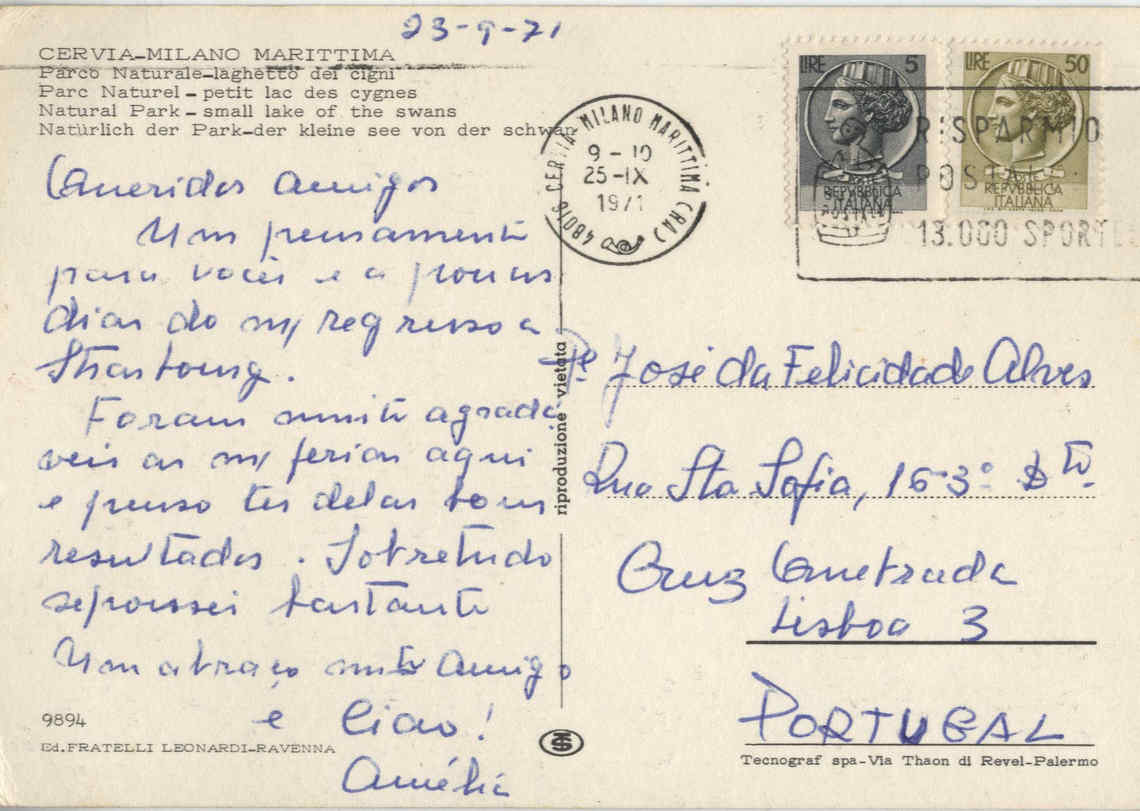 23-9-71
CERVIA-MILANO MARITTIMA
Parco Naturale-laghetto dei cigni
Parc Naturel - petit lac des cygnes
Natural Park - small lake of the swans
Natürlich der Park-der kleine see von der schwan
48016 CERVIA - MILANO MARITTIMA (RA)
9 - 10
25-IX
1971
LIRE 5
REPVBBLICA
ITALIANA
LIRE 50
REPVBBLICA
ITALIANA
RISPARMIO
POSTALE
13.000 SPORTE
Queridos amigos
Um pensamento
para vocês e a poucos
dias do m/ regresso a
Strasbourg.
Foram muito agradá
veis as m/ ferias aqui
e penso ter delas bons
resultados. Sobretudo
repousei bastante
Um abraço muito amigo
e Ciao!
Amélia
9894
Ed.FRATELLI LEONARDI-RAVENNA
riproduzione vietata
Pe. José da Felicidade Alves
Rua Sta Sofia, 16-3º Dto.
Cruz Quebrada
Lisboa 3
PORTUGAL
Tecnograf spa-Via Thaon di Revel-Palermo